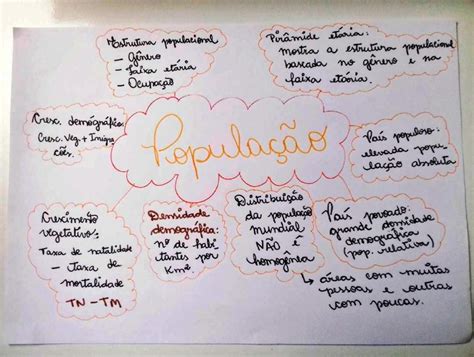 Estrutura populacional
- Gênero
- Faixa etária
- Ocupação
Pirâmide etária:
mostra a estrutura populacional
bascada no gênero e na
faixa etária.
Cresc. demográfico:
Cresc. Veg. + Imigra
ções.
População
País populoso:
elevada popu
lação absoluta
Crescimento
vegetativo:
Taxa de natalidade
- Taxa de
mortalidade
TN - TM
Densidade
demográfica:
nº de habi
tantes por
Km²
Distribuição
da população
mundial
NÃO é
homogênia
País povoado:
grande densidade
demográfica
(pop. relativa)
↳ áreas com muitas
pessoas e outras
com poucas.